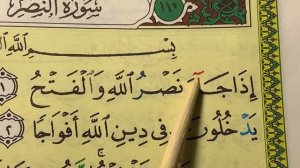 سُورَةُ النَّصْرِ ١١٠
بِسْمِ اللَّهِ
إِذَا جَآءَ نَصْرُ اللَّهِ وَالْفَتْحُ ١
يَدْخُلُونَ فِي دِينِ اللَّهِ أَفْوَاجًا ٢